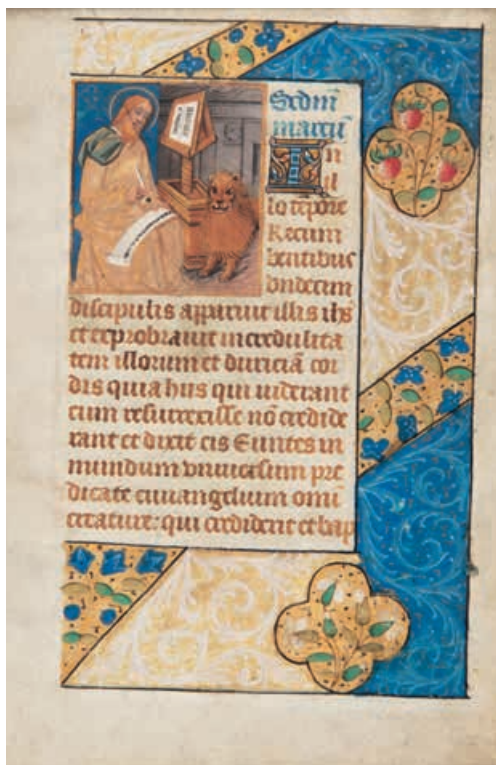 Scdm̄
marcū
In
il
lo tēpore
Recum
bentibus
vndecim
discipulis apparuit illis ihs̄
et exprobrauit incredulita
tem illorum et duriciā cor
dis quia hiis qui uiderant
eum resurrexisse nō credide
rant et dixit eis Euntes in
mundum vniuersum pre
dicate euuangelium omi
creature: qui crediderit et bap